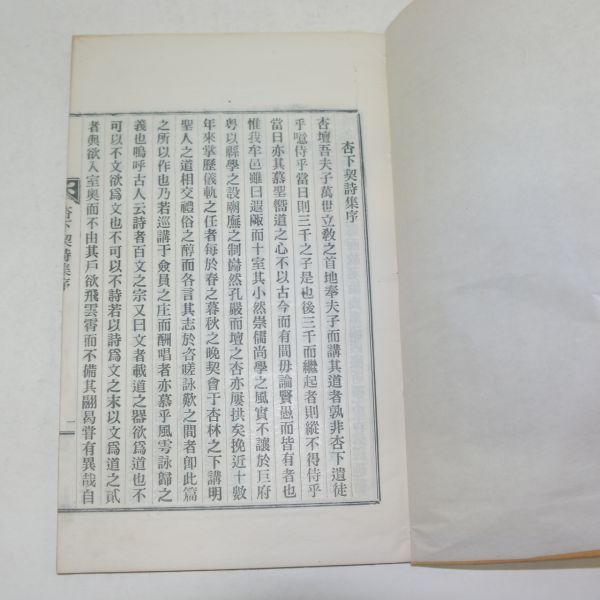 杏下契詩集序
杏壇吾夫子萬世立敎之首地奉夫子而講其道者孰非杏下遺徒
乎噫侍乎當日則三千之子是也後三千而繼起者則縱不得侍乎
當日亦其慕聖嚮道之心不以古今而有間毋論賢愚而皆有者也
惟我牟邑雖曰遐陬而十室其小然崇儒尚學之風實不讓於巨府
粤以縣學之設廟廡之制巋然孔嚴而壇之杏亦屢拱矣挽近十數
年來掌歷儀軌之任者每於春之暮秋之晚契會于杏林之下講明
聖人之道相交禮俗之醇而各言其志於咨嗟詠歎之間者卽此篇
之所以作也乃若巡講于僉員之庄而酬唱者亦慕乎風雩詠歸之
義也嗚呼古人云詩者百文之宗又曰文者載道之器欲爲道也不
可以不文欲爲文也不可以不詩若以詩爲文之末以文爲道之貳
者與欲入室奧而不由其戶欲飛雲霄而不備其翮曷嘗有異哉自
杏下契詩集序
一